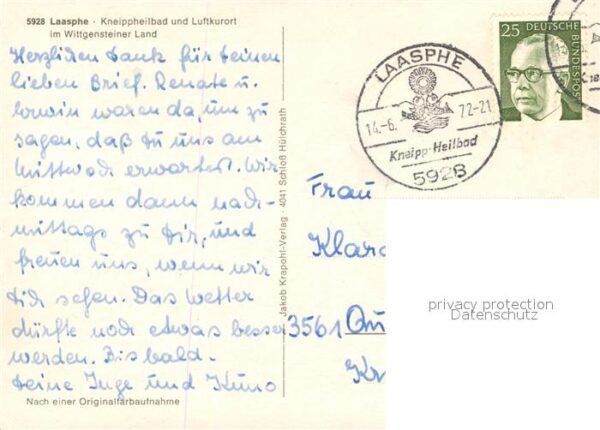 5928 Laasphe · Kneippheilbad und Luftkurort
im Wittgensteiner Land
Herzlichen Dank für Deinen
lieben Brief. Renate u.
Erwin waren da, um zu
sagen, daß Du uns am
Mittwoch erwartest. Wir
kommen dann nach-
mittags zu Dir, und
freuen uns, wenn wir
Dich sehen. Das Wetter
dürfte noch etwas besser
werden. Bis bald.
Deine Inge und Kuno
Nach einer Originalfarbaufnahme
Jakob Krapohl-Verlag · 4041 Schloß Hülchrath
LAASPHE
14.-6. 72-21
Kneipp-Heilbad
5928
25 DEUTSCHE
BUNDESPOST
Frau
Klara
3561
Kr
privacy protection
Datenschutz